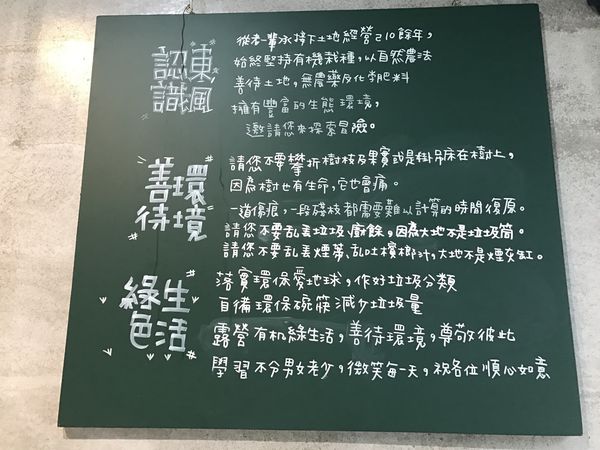 認識東風
從老一輩承接下土地經營已10餘年，
始終堅持有機栽種，以自然農法
善待土地，無農藥及化學肥料
擁有豐富的生態環境，
邀請您來探索冒險。
善待環境
請您不要攀折樹枝及果實或是掛吊床在樹上，
因為樹也有生命，它也會痛。
一道傷痕，一段殘枝都需要難以計算的時間復原。
請您不要亂丟垃圾、廚餘，因為大地不是垃圾筒。
請您不要亂丟煙蒂、亂吐檳榔汁，大地不是煙灰缸。
綠色生活
落實環保愛地球，作好垃圾分類
自備環保碗筷減少垃圾量
露營有机綠生活，善待環境，尊敬彼此
學習不分男女老少，微笑每一天，祝各位順心如意